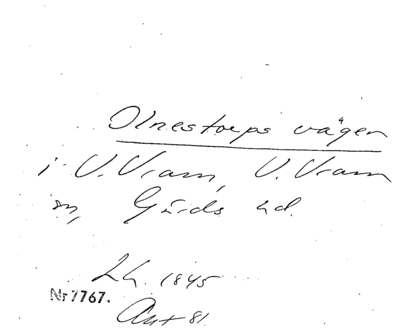 Olnestorps vägen
i V. Vram, V. Vram
sn, Gärds hd.
Lh. 1845
Nr 7767.
Ant 81.